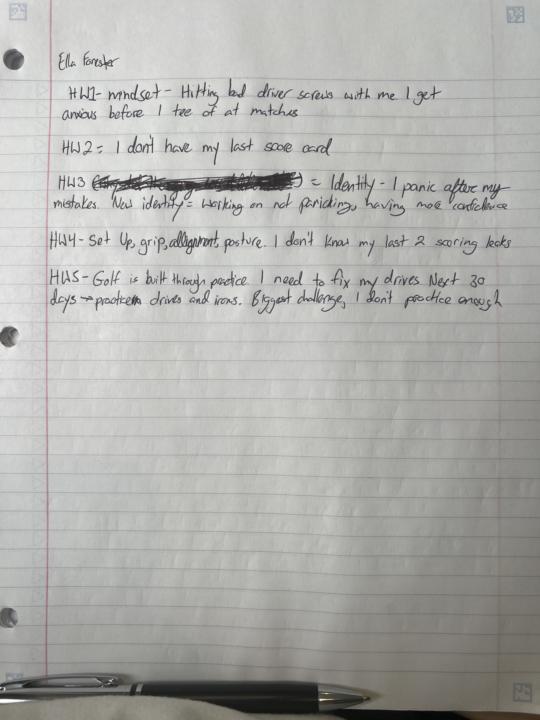 Ella Forester
HW1- mindset - Hitting bad driver screws with me I get
anxious before I tee of at matches
HW2 = I don't have my last score card
HW3 = Identity - I panic after my
mistakes. New identity = working on not panicking, having more confidence
HW4- Set Up, grip, allignment, posture. I don't know my last 2 scoring leaks
HW5- Golf is built through practice I need to fix my drives Next 30
days → practice drives and irons. Biggest challenge, I don't practice enough